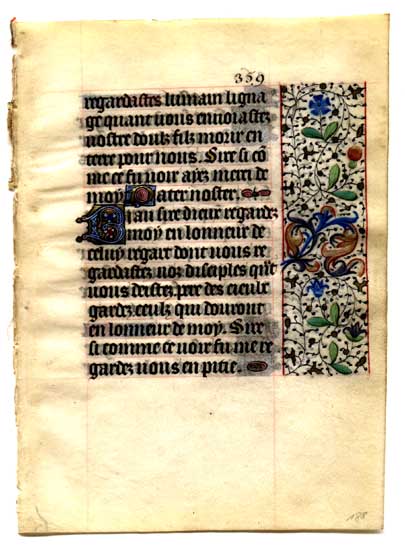 359
regardastes lumain ligna
ge quant vous enuoiastez
nostre doulz filz morir en
terre pour nous. Sire si cõ
me ce fu voir ayez merci de
moy. Pater noster.
Biau sire dieux regardez
moy en lonneur de
celuy regart dont vous re
gardastez voz disciples
vous deistez pere des cieulz
gardez ceulz qui douront
en lonneur de moy. Sire
si comme ce voir fu me re
gardez vous en pitie.
188